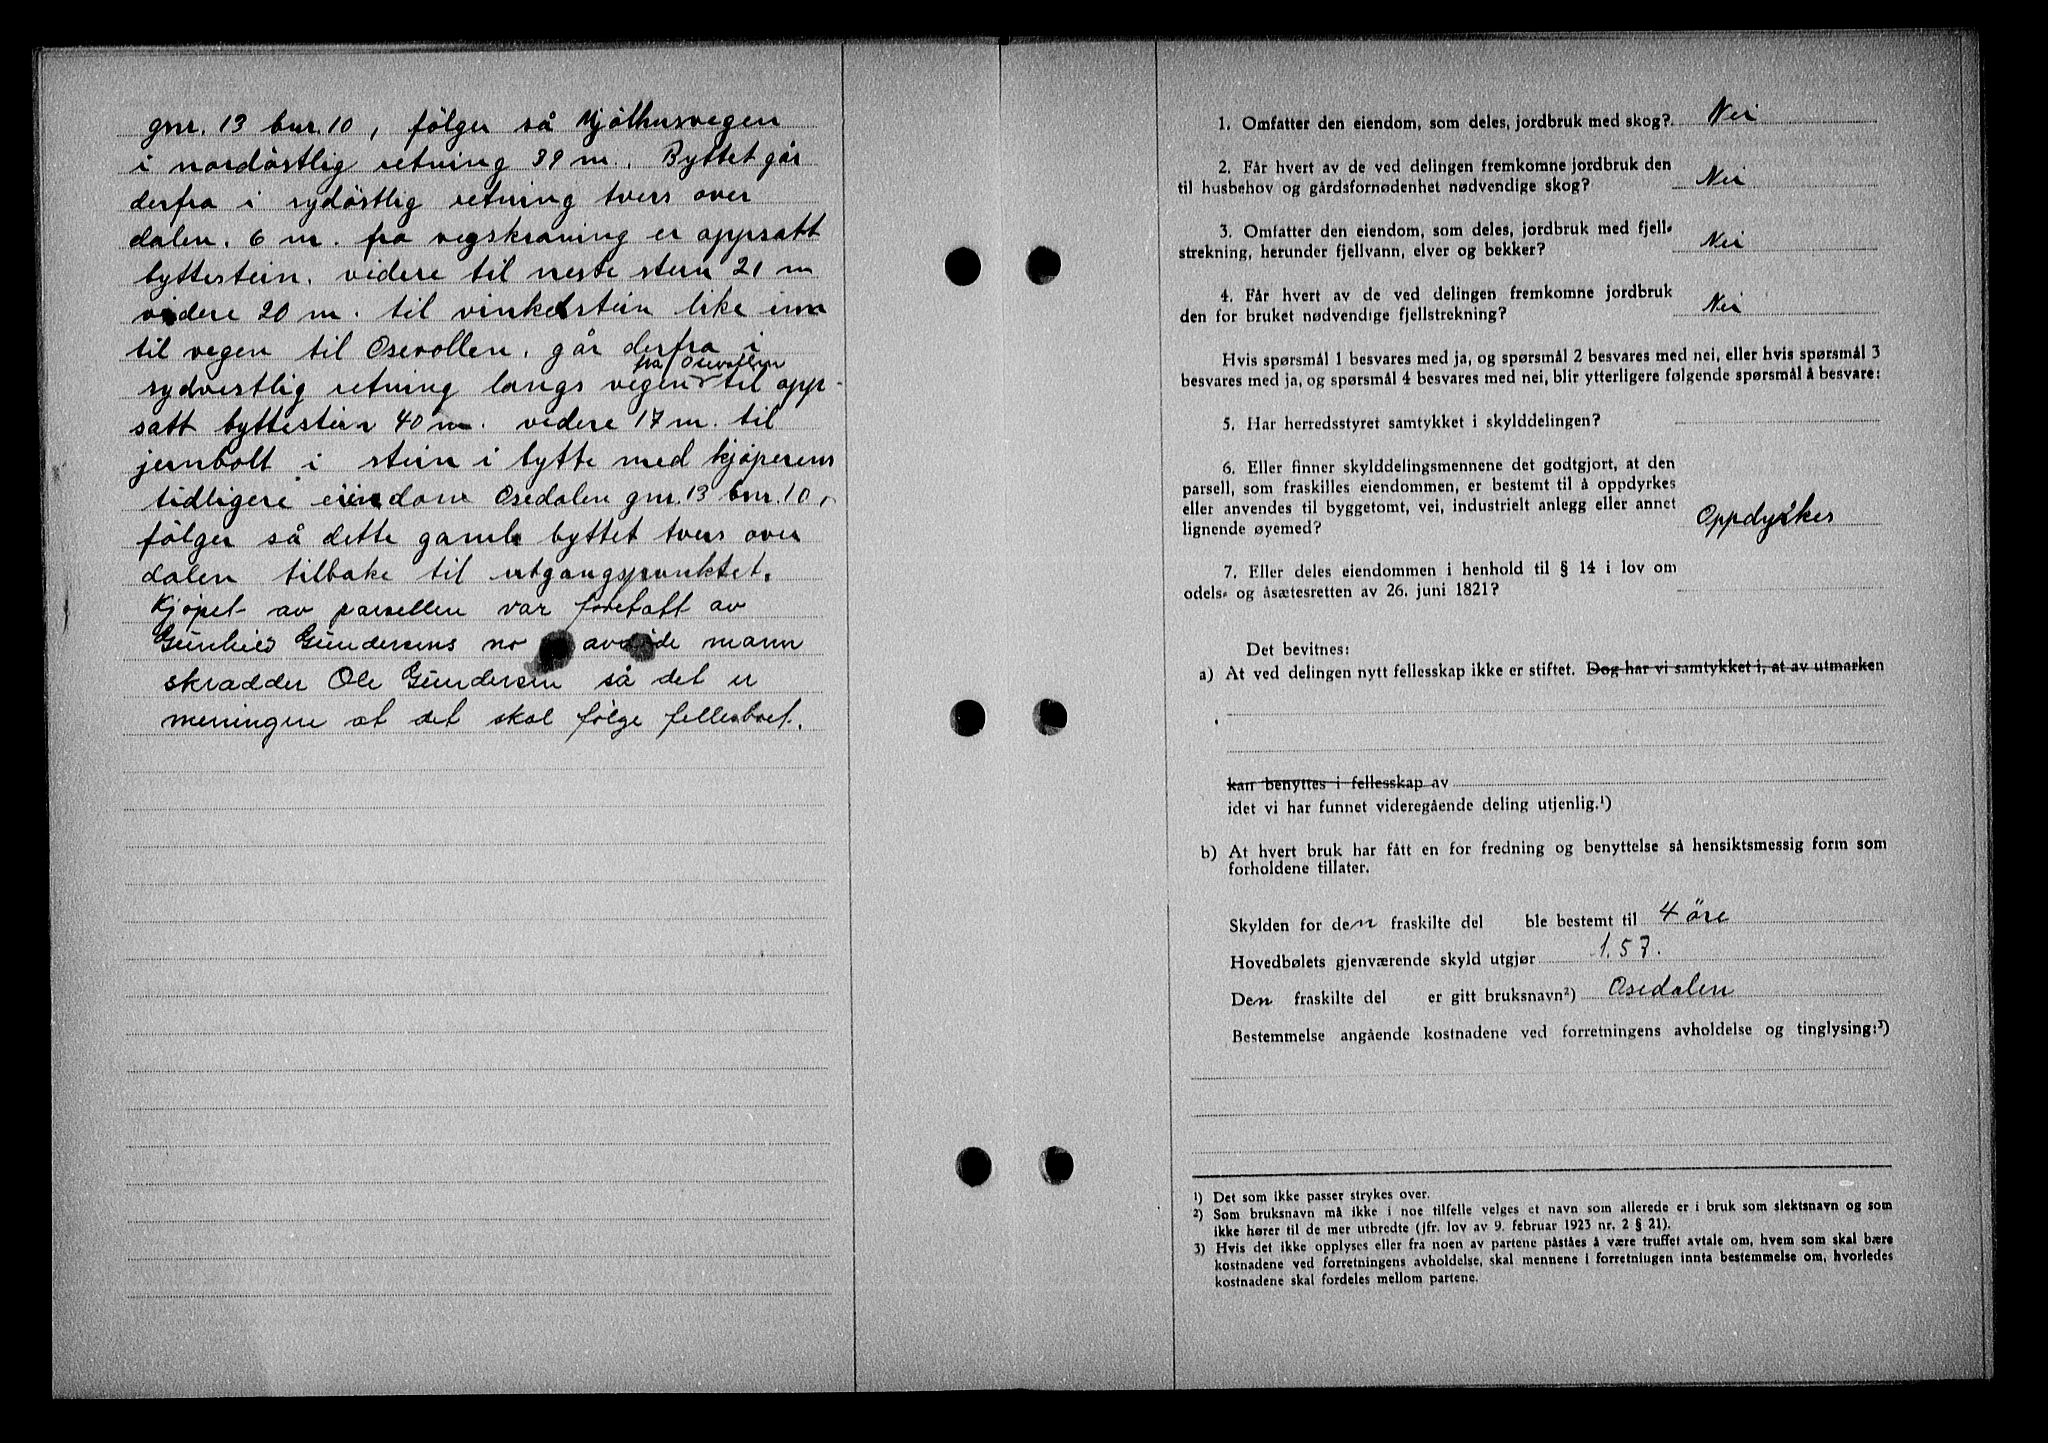 gnr. 13 bnr. 10, følger så Mjølhusvegen
i nordøstlig retning 39 m. Byttet går
derfra i sydøstlig retning tvers over
dalen. 6 m. fra vegskråning er oppsatt
byttestein. videre til neste stein 21 m
videre 20 m. til vinkelstein like inn
til vegen til Osevollen, går derfra i
sydvestlig retning langs vegen fra Osevollen til opp-
satt byttestein 40 m. videre 17 m. til
jernbolt i stein i bytte med kjøperens
tidligere eiendom Osedalen gnr. 13 bnr. 10,
følger så dette gamle byttet tvers over
dalen tilbake til utgangspunktet.
Kjøpet av parsellen var foretatt av
Gunhild Gundersens no avdøde mann
skrædder Ole Gundersen så det er
meningen at det skal følge fellesboet.
1. Omfatter den eiendom, som deles, jordbruk med skog? Nei
2. Får hvert av de ved delingen fremkomne jordbruk den
til husbehov og gårdsfornødenhet nødvendige skog? Nei
3. Omfatter den eiendom, som deles, jordbruk med fjell-
strekning, herunder fjellvann, elver og bekker? Nei
4. Får hvert av de ved delingen fremkomne jordbruk
den for bruket nødvendige fjellstrekning? Nei
Hvis spørsmål 1 besvares med ja, og spørsmål 2 besvares med nei, eller hvis spørsmål 3
besvares med ja, og spørsmål 4 besvares med nei, blir ytterligere følgende spørsmål å besvare:
5. Har herredsstyret samtykket i skylddelingen?
6. Eller finner skylddelingsmennene det godtgjort, at den
parsell, som fraskilles eiendommen, er bestemt til å oppdyrkes
eller anvendes til byggetomt, vei, industrielt anlegg eller annet
lignende øyemed? Oppdyrkes
7. Eller deles eiendommen i henhold til § 14 i lov om
odels- og åsætesretten av 26. juni 1821?
Det bevitnes:
a) At ved delingen nytt fellesskap ikke er stiftet. Dog har vi samtykket i, at av utmarken
kan benyttes i fellesskap av
idet vi har funnet videregående deling utjenlig.¹)
b) At hvert bruk har fått en for fredning og benyttelse så hensiktsmessig form som
forholdene tillater.
Skylden for den fraskilte del ble bestemt til 4 øre
Hovedbølets gjenværende skyld utgjør 1.57.
Den fraskilte del er gitt bruksnavn²) Osedalen
Bestemmelse angående kostnadene ved forretningens avholdelse og tinglysing:³)
1) Det som ikke passer strykes over.
2) Som bruksnavn må ikke i noe tilfelle velges et navn som allerede er i bruk som slektsnavn og som
ikke hører til de mer utbredte (jfr. lov av 9. februar 1923 nr. 2 § 21).
3) Hvis det ikke opplyses eller fra noen av partene påståes å være truffet avtale om, hvem som skal bære
kostnadene ved forretningens avholdelse, skal mennene i forretningen innta bestemmelse om, hvorledes
kostnadene skal fordeles mellom partene.